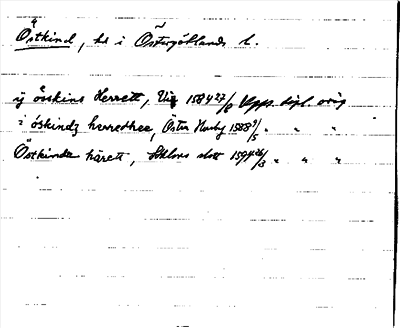 Östkind, hd i Östergötlands l.
ÿ össkins Herrett, 1584 27/8 Upps. dipl. orig
i óskindz herredhee, Öster Husby 1588 9/5 " " "
Östkinda härett, slott 1594 26/3 " " "